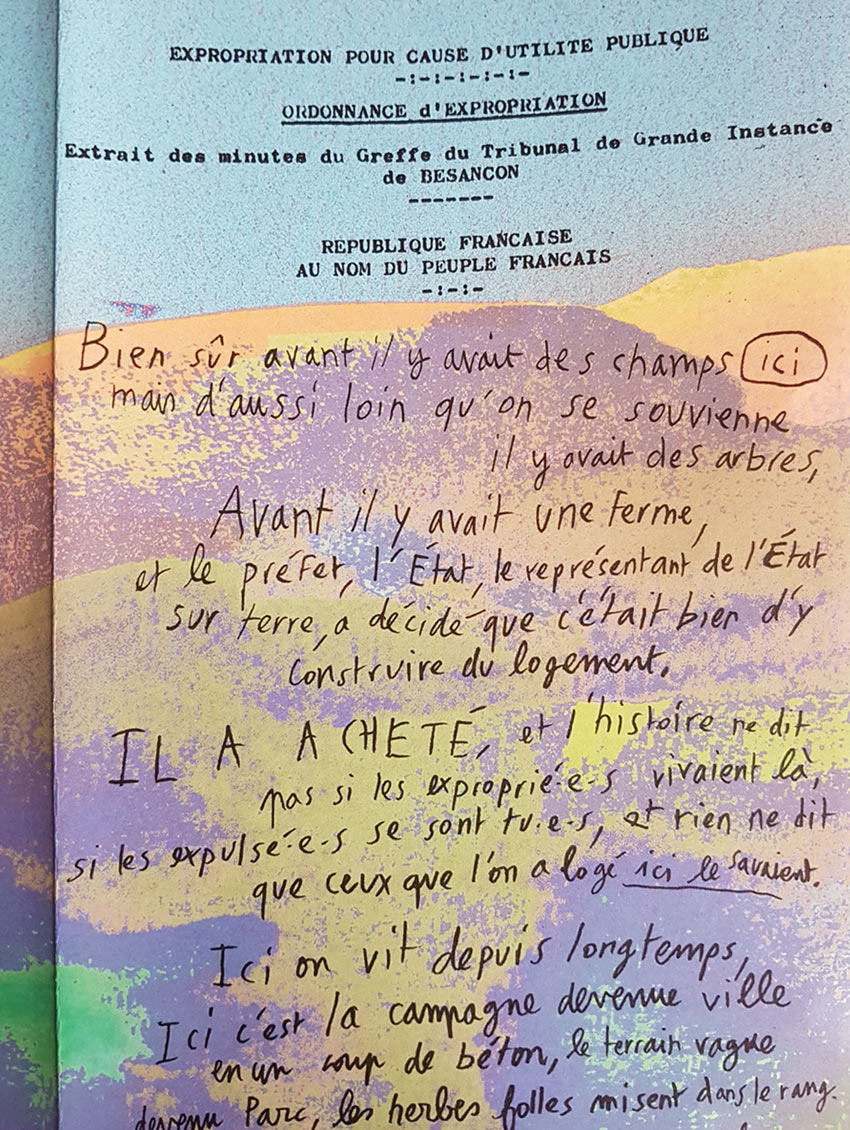 EXPROPRIATION POUR CAUSE D'UTILITE PUBLIQUE
-:-:-:-:-:-
ORDONNANCE d'EXPROPRIATION
Extrait des minutes du Greffe du Tribunal de Grande Instance
de BESANCON
-------
REPUBLIQUE FRANCAISE
AU NOM DU PEUPLE FRANCAIS
-:-:-
Bien sûr avant il y avait des champs ici
mais d'aussi loin qu'on se souvienne
il y avait des arbres,
Avant il y avait une ferme,
et le préfet, l'État, le représentant de l'État
sur terre, a décidé que c'était bien d'y
construire du logement.
IL A ACHETÉ, et l'histoire ne dit
pas si les exproprié·e·s vivaient là,
si les expulsé·e·s se sont tu·e·s, et rien ne dit
que ceux que l'on a logé ici le savaient.
Ici on vit depuis longtemps,
Ici c'est la campagne devenue ville
en un coup de béton, le terrain vague
devenu Parc, les herbes folles misent dans le rang.